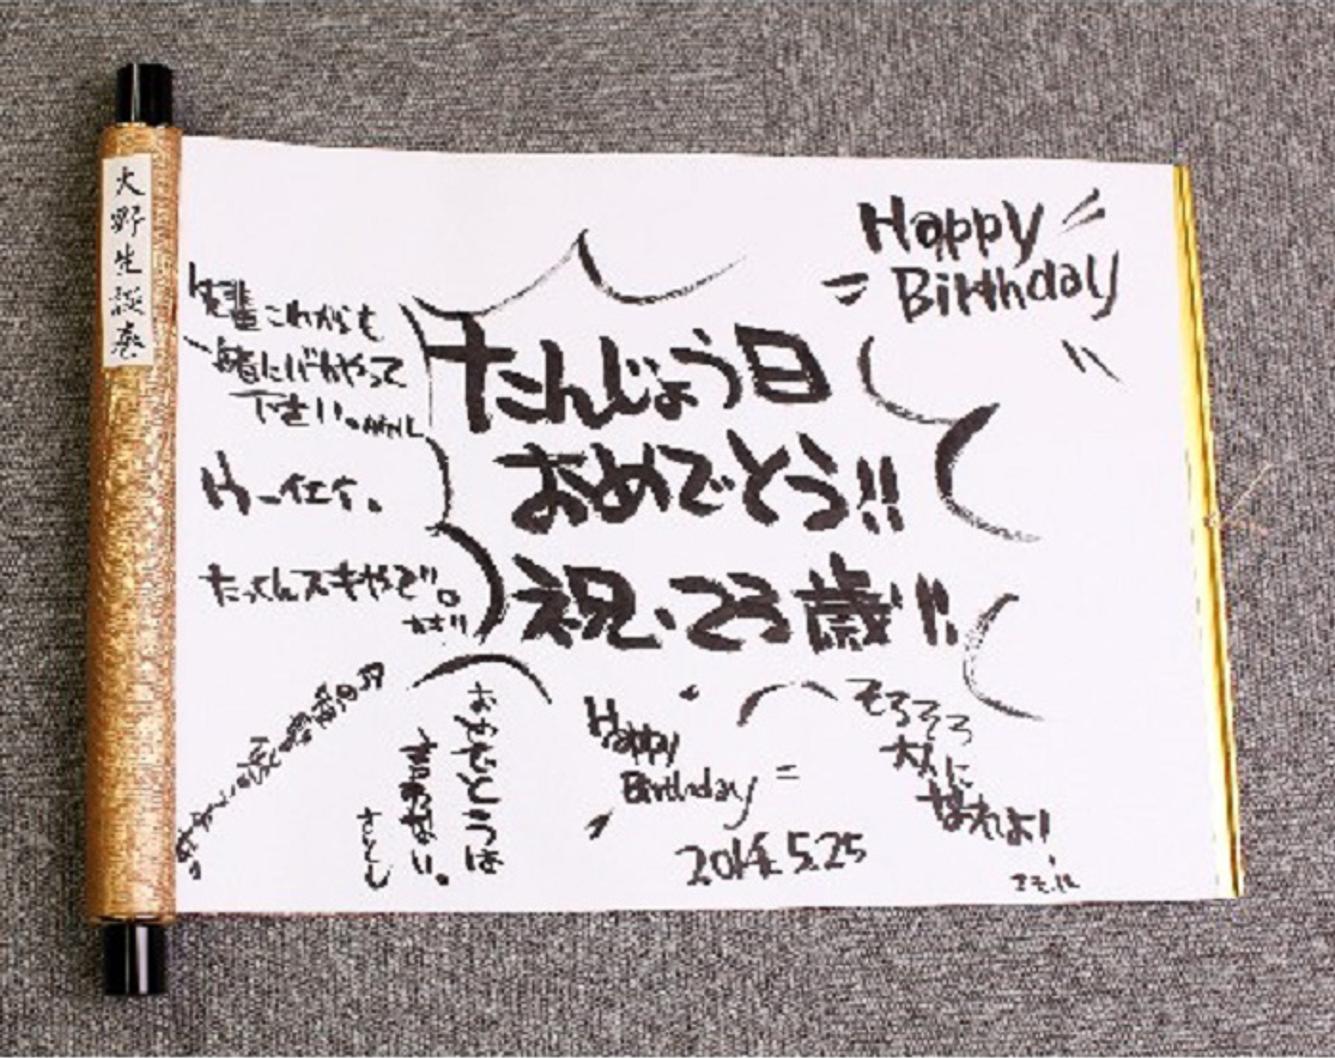 Happy
Birthday
たんじょう日
おめでとう!!
祝・23歳!!
先輩これからも
一緒にバカやって
下さい。
たっくんスキやで!!。
おめでとうは
言わない。
さとし
Happy
Birthday
2014.5.25
そろそろ
大人に
なれよ!
大野生誕巻